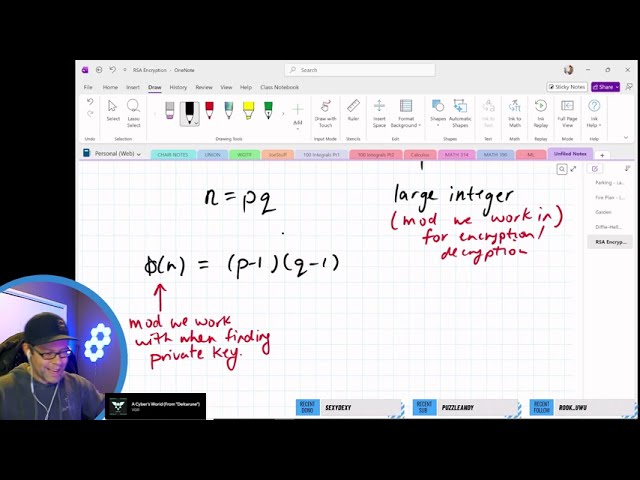 RSA Encryption - OneNote
Search
Sticky Notes
File Home Insert Draw View Help Class Notebook
Undo
Lasso Select
Eraser
Add
Drawing Tools
Draw with Touch
Ruler
Format Background
Ink to Shape
Automatic Shapes
Ink to Text
Ink to Math
Ink Replay
Full Page View
Ink Help
Personal (Web) CHAIR NOTES UNION WGTF 100 Integrals Pt1 100 Integrals Pt2 Calculus MATH 574 ML Unfiled Notes
Parking - Le
Fire Plan - L
Garden
Diffie-Hell
RSA Encryp
n = pq
large integer
(mod we work in)
for encryption/
decryption
ϕ(n) = (p-1)(q-1)
mod we work
with when finding
private key.
A Cyber's World (From "Deltarune")
RECENT DONO SEXYDEXY
RECENT SUB PUZZLEANDY
RECENT FOLLOW ROOK_UWU